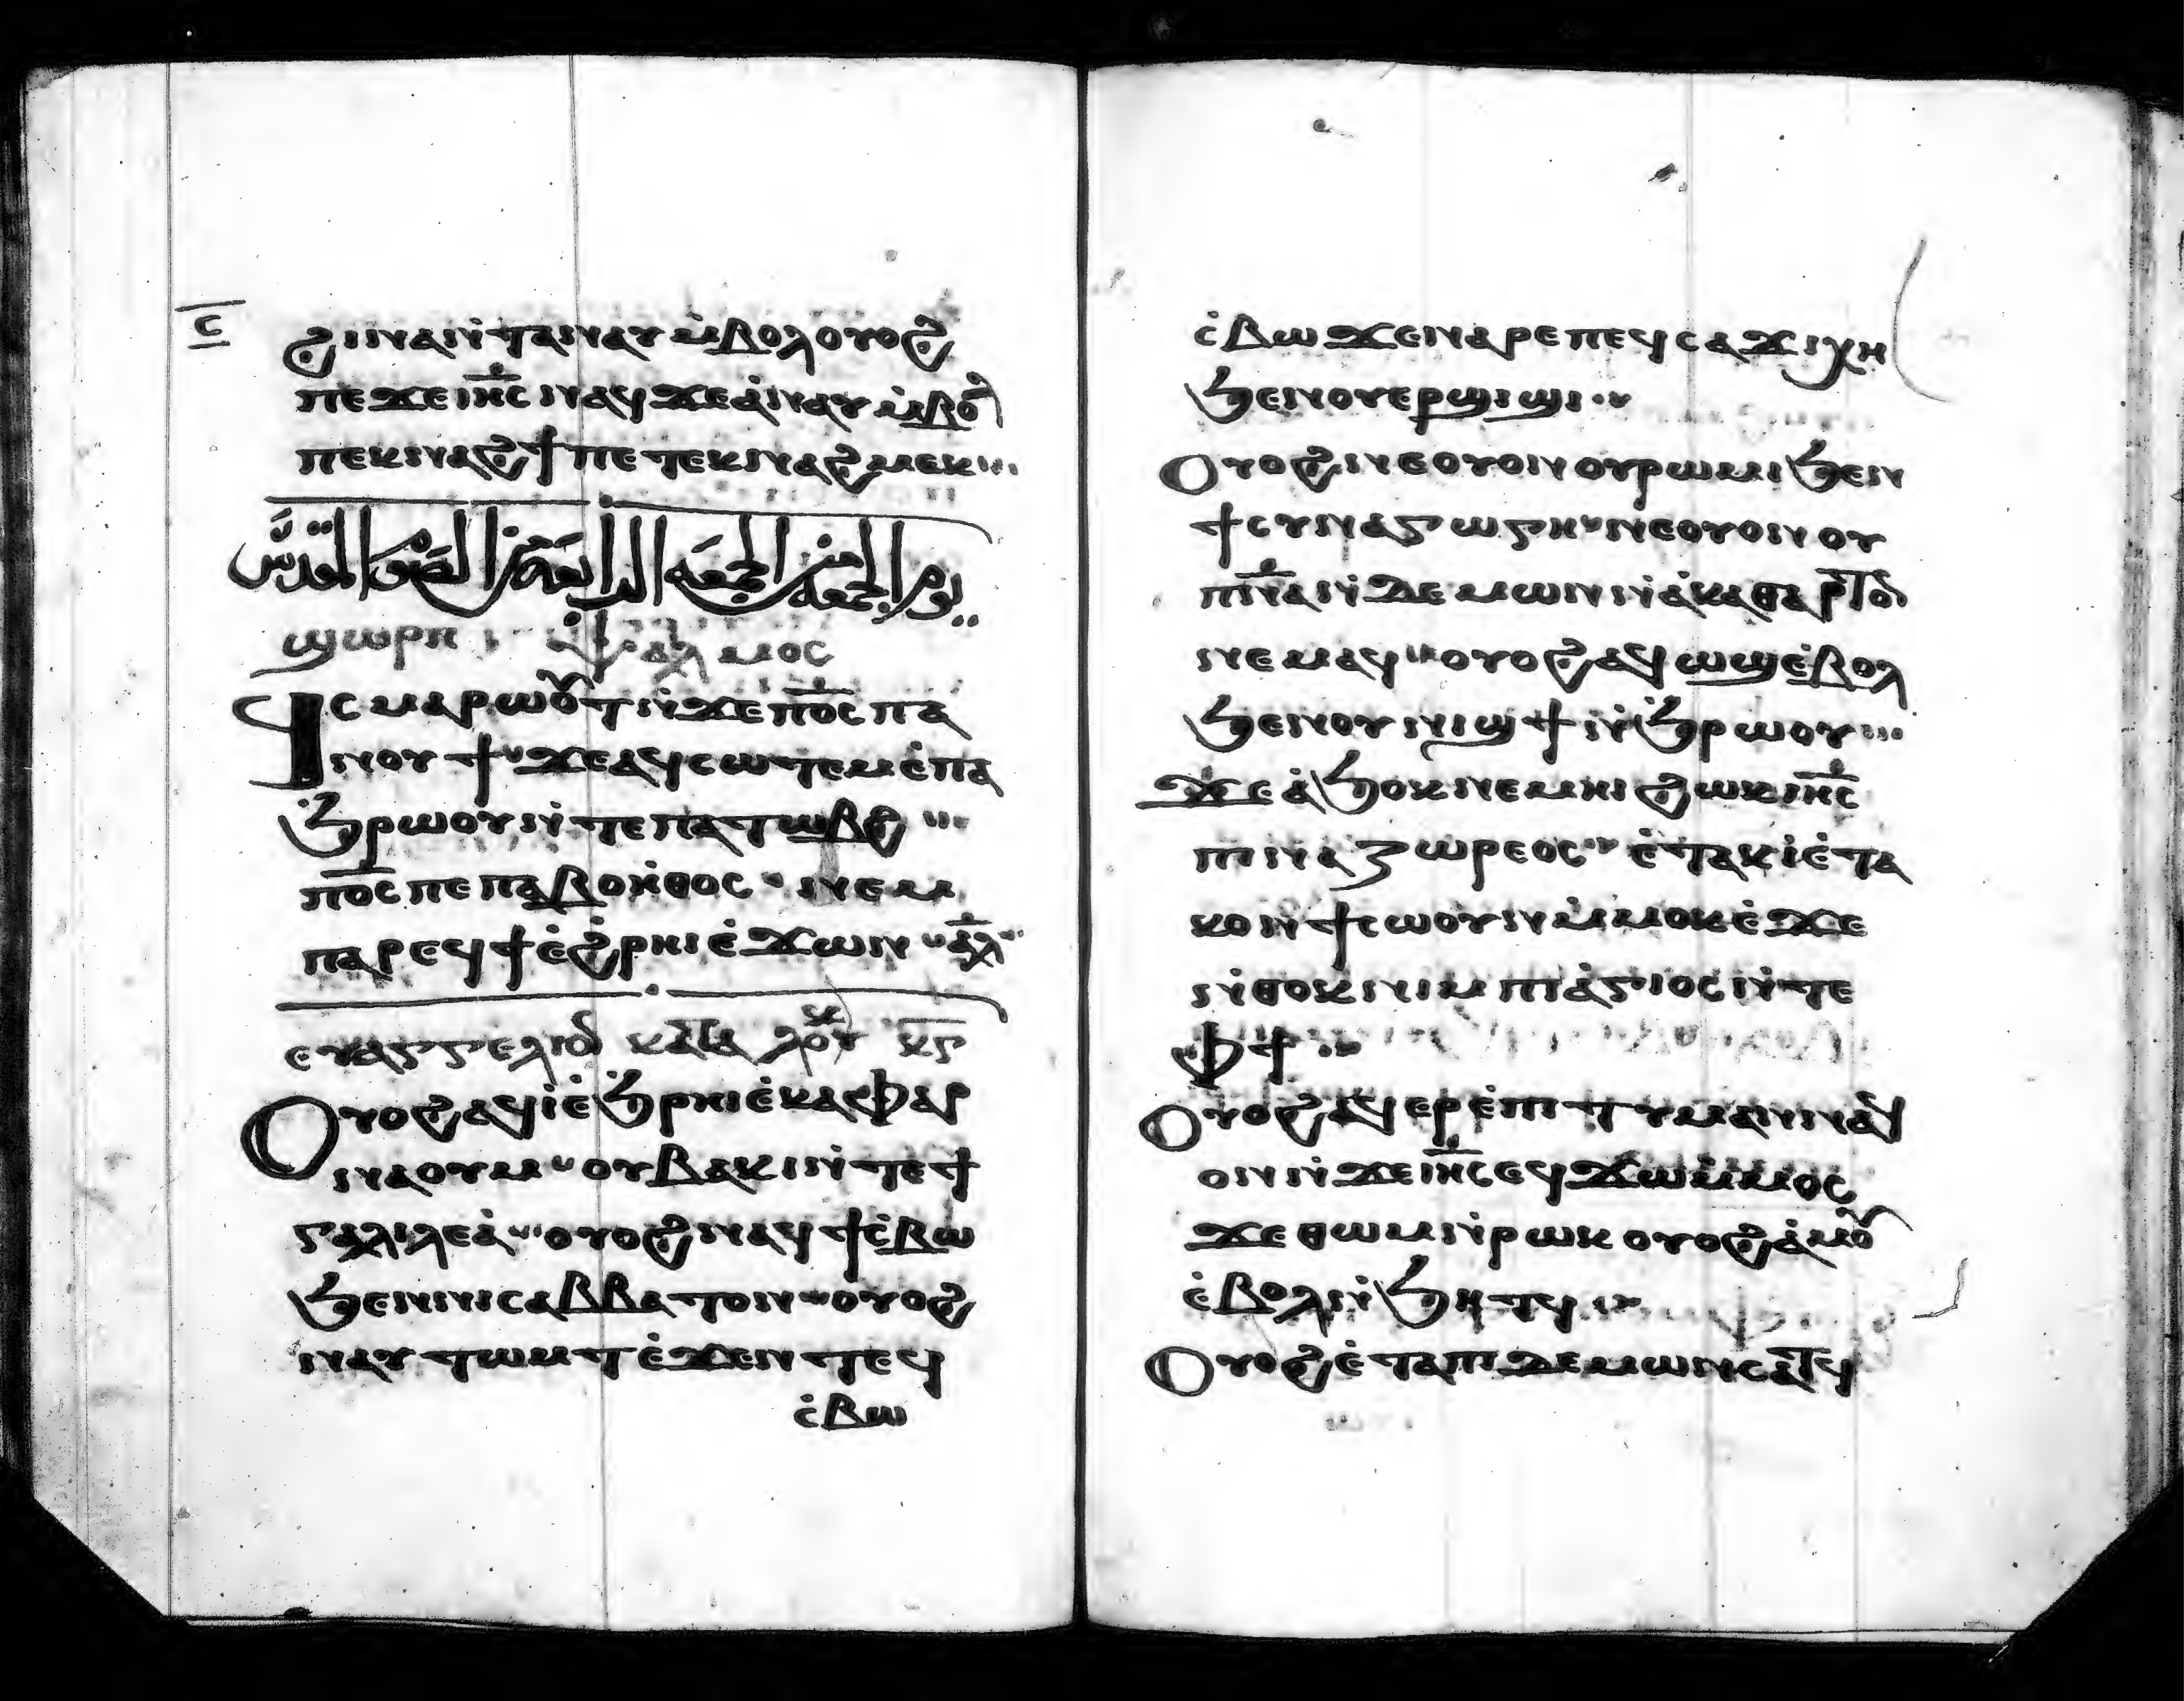 ⲥ̅
ϩⲓⲛⲁ ⲛ̀ⲧⲁⲛⲁⲩ ⲙ̀ⲃⲟⲗ ⲟⲩⲟϩ
ⲡⲉϫⲉ ⲓⲏ̅ⲥ ⲛⲁϥ ϫⲉ ⲁ̀ⲛⲁⲩ ⲙ̀ⲃⲟⲗ
ⲡⲉⲕⲛⲁϩϯ ⲡⲉⲧⲉⲕⲛⲁϩⲙⲉⲕ
يوم الجمعه من الجمعه الرابعة من الصوم المقدس
ϣⲱⲣⲡ ⲯⲁⲗⲙⲟⲥ
ϥⲥⲙⲁⲣⲱⲟⲩⲧ ⲛ̀ϫⲉ ⲡ⳪ ⲡⲁ
ⲛⲟⲩϯ ϫⲉ ⲁϥⲥⲱⲧⲉⲙ ⲉ̀ⲡⲁ
ϧⲣⲱⲟⲩ ⲛ̀ⲧⲉ ⲡⲁⲧⲱⲃϩ
ⲡ⳪ ⲡⲉ ⲡⲁⲃⲟⲏ̀ⲑⲟⲥ ⲛⲉⲙ
ⲡⲁⲣⲉϥϯ ⲉ̀ϩⲣⲏⲓ ⲉ̀ϫⲱⲛ ⲁ̅ⲗ
ⲉⲩⲁⲅⲅⲉⲗⲓⲟⲛ ⲕⲁⲧⲁ ⲗⲟⲩⲕ ⲕ̅ⲋ
Ⲟⲩⲟϩ ⲁϥⲓ̀ ⲉ̀ϧⲣⲏⲓ ⲉ̀ⲕⲁⲫⲁⲣ
ⲛⲁⲟⲩⲙ ⲟⲩⲃⲁⲕⲓ ⲛ̀ⲧⲉ ϯ
ⲅⲁⲗⲓⲗⲉⲁ̀ ⲟⲩⲟϩ ⲛⲁϥϯⲥ̀ⲃⲱ
ϧⲉⲛ ⲛⲓⲥⲁⲃⲃⲁⲧⲟⲛ ⲟⲩⲟϩ
ⲛⲁⲩⲧⲱⲙⲧ ⲉ̀ϫⲉⲛ ⲧⲉϥ
ⲥ̀ⲃⲱ
ⲥ̀ⲃⲱ ϫⲉ ⲛⲁⲣⲉ ⲡⲉϥⲥⲁϫⲓ ⲭⲏ
ϧⲉⲛ ⲟⲩⲉⲣϣⲓϣⲓ
Ⲟⲩⲟϩ ⲛⲉ ⲟⲩⲟⲛ ⲟⲩⲣⲱⲙⲓ ϧⲉⲛ
ϯⲥⲩⲛⲁⲅⲱⲅⲏ ⲛⲉ ⲟⲩⲟⲛ ⲟⲩ
ⲡ̅ⲛ̅ⲁ ⲛ̀ⲇⲉⲙⲱⲛ ⲛ̀ⲁ̀ⲕⲁⲑⲁⲣⲧⲟⲛ
ⲛⲉⲙⲁϥ ⲟⲩⲟϩ ⲁϥⲱϣ ⲉ̀ⲃⲟⲗ
ϧⲉⲛ ⲟⲩⲛⲓϣϯ ⲛ̀ϧⲣⲱⲟⲩ
Ϫⲉ ⲁ̀ϧⲟⲕ ⲛⲉⲙⲏⲓ ϩⲱⲕ ⲓⲏ̅ⲥ
ⲡⲓⲛⲁⲍⲱⲣⲉⲟⲥ ⲉ̀ⲧⲁⲕⲓ̀ ⲉ̀ⲧⲁ
ⲕⲟⲛ ϯⲥⲱⲟⲩⲛ ⲙ̀ⲙⲟⲕ ⲉ̀ϫⲉ
ⲛ̀ⲑⲟⲕ ⲛⲓⲙ ⲡⲓⲁ̀ⲅⲓⲟⲥ ⲛ̀ⲧⲉ
ⲫϯ
Ⲟⲩⲟϩ ⲁϥⲉⲣⲉ̀ⲡⲓⲧⲩⲙⲁⲛ ⲛⲁϥ
ⲟⲛ ⲛ̀ϫⲉ ⲓⲏ̅ⲥ ⲉϥϫⲱ ⲙ̀ⲙⲟⲥ
ϫⲉ ⲑⲱⲙ ⲛ̀ⲣⲱⲕ ⲟⲩⲟϩ ⲁ̀ⲙⲟⲩ
ⲉ̀ⲃⲟⲗ ⲛ̀ϧⲏⲧϥ
Ⲟⲩⲟϩ ⲉ̀ⲧⲁ ⲡⲓⲇⲉⲙⲱⲛ ⲥⲁⲧϥ